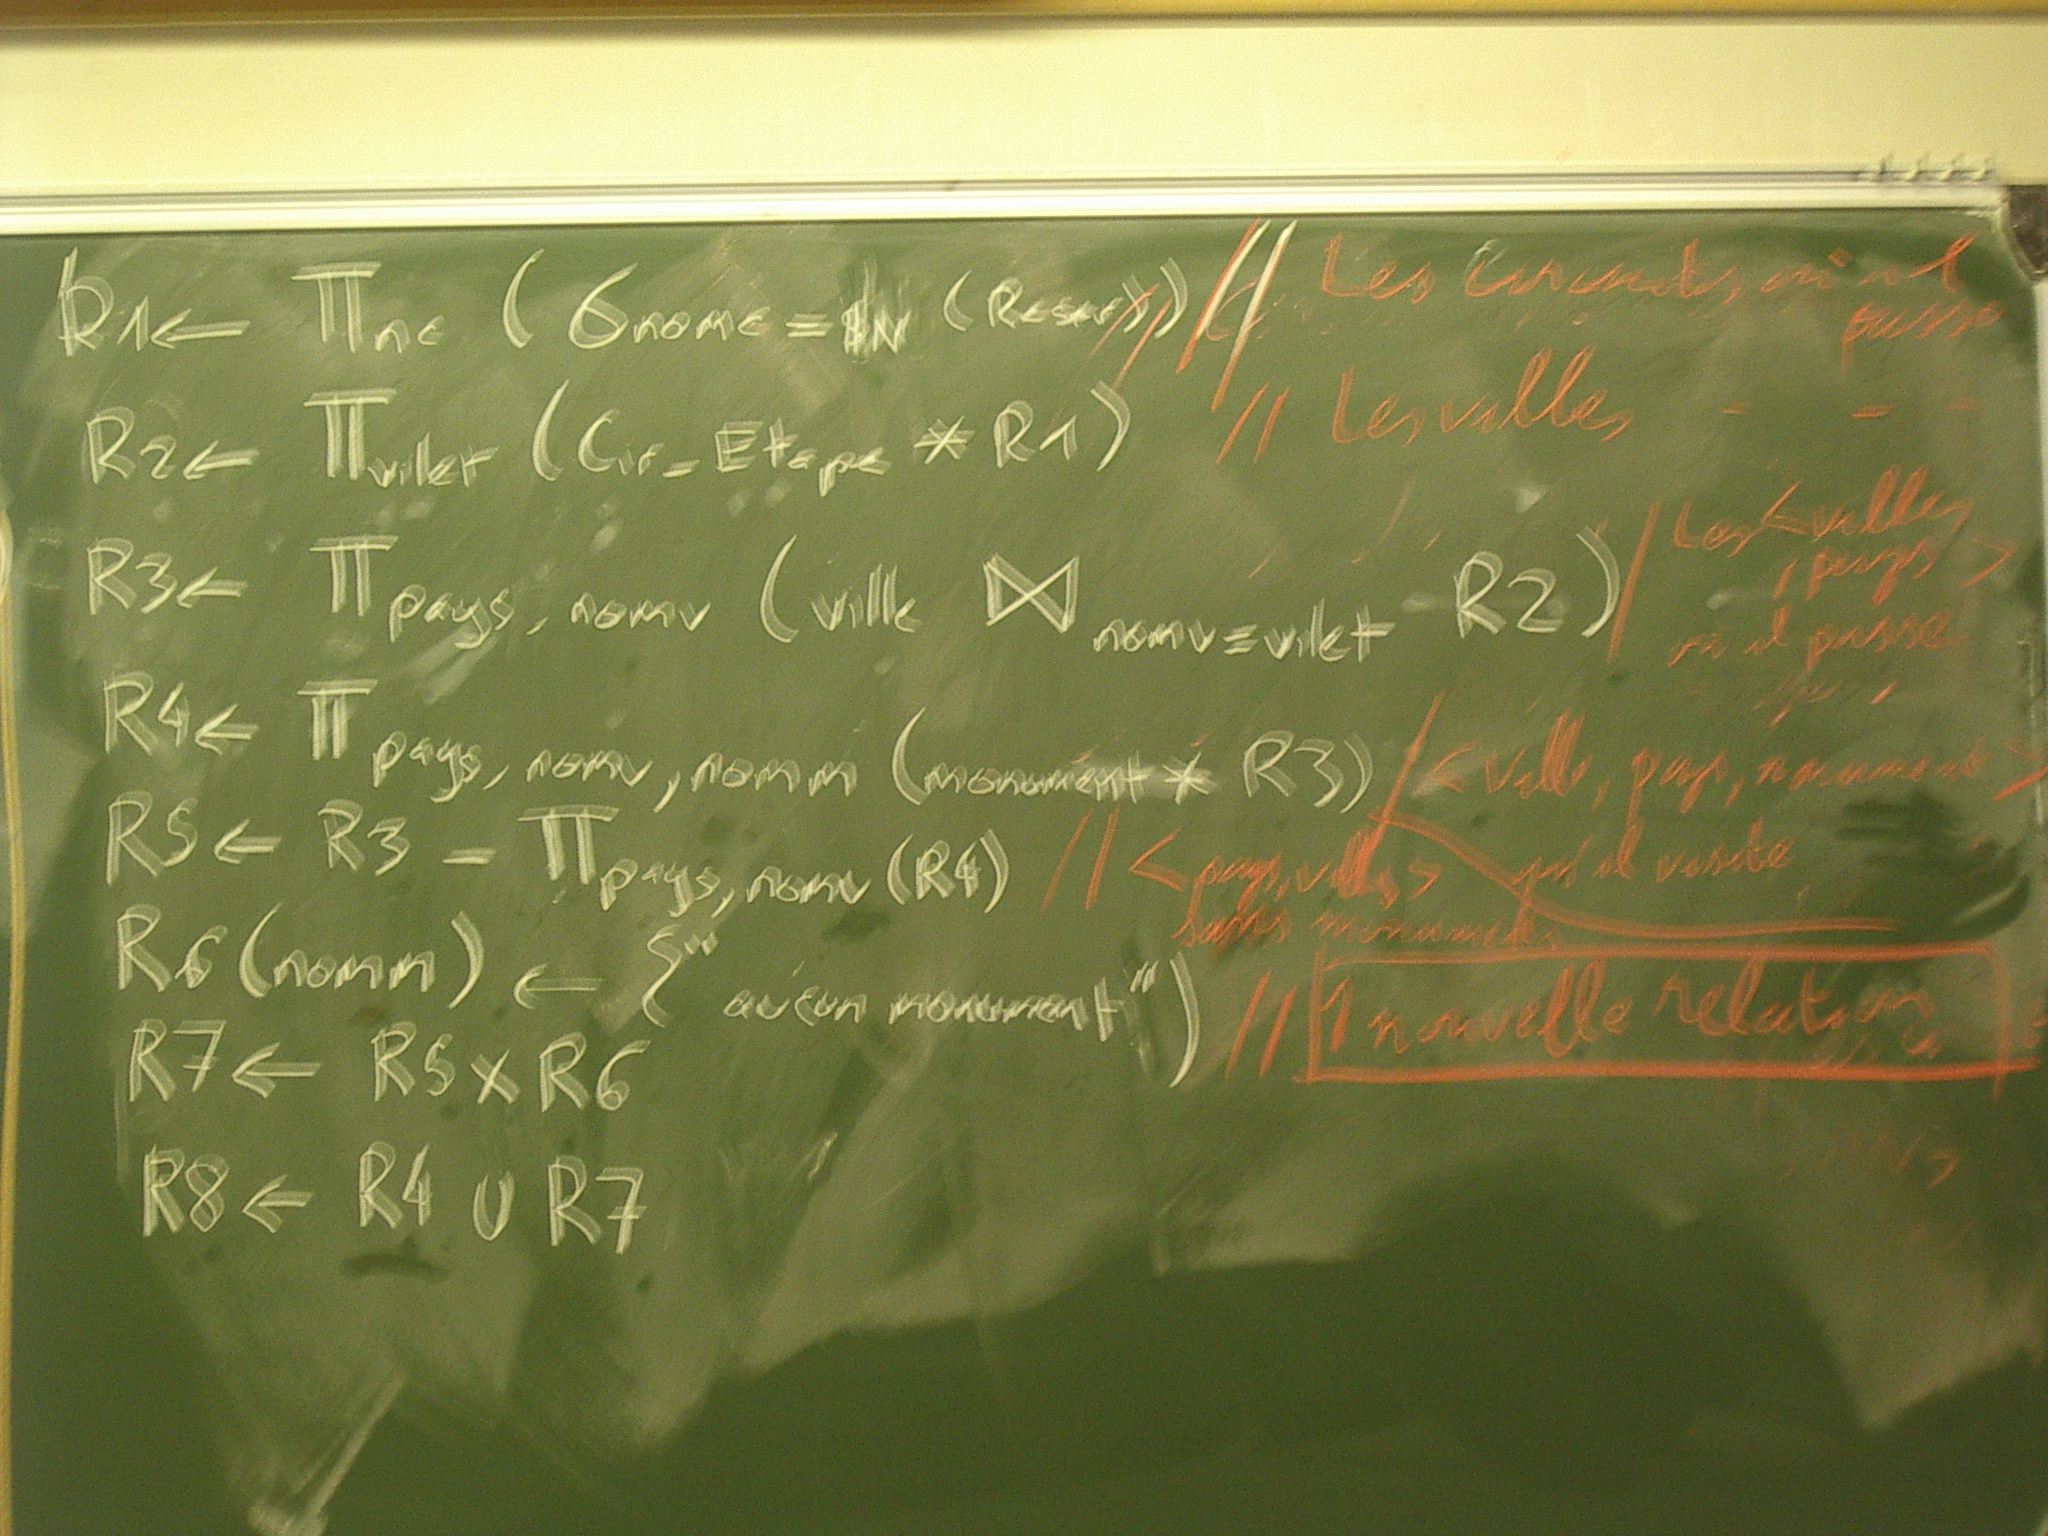 R1 ← π nc ( σ nomc = (Reserv)) // Les circuits, où il passe
R2 ← π vilet (Cir_Etape * R1) // Les villes - - -
R3 ← π pays, nomv (ville ⋈ nomv=vilet R2) / Les <villes, pays> où il passe
R4 ← π pays, nomv, nomm (monument * R3) / <ville, pays, monument> qu'il visite
R5 ← R3 - π pays, nomv (R4) // <pays, villes> sans monuments
R6 (nomm) ← {"aucun monument"} // 1 nouvelle relation
R7 ← R5 x R6
R8 ← R4 ∪ R7